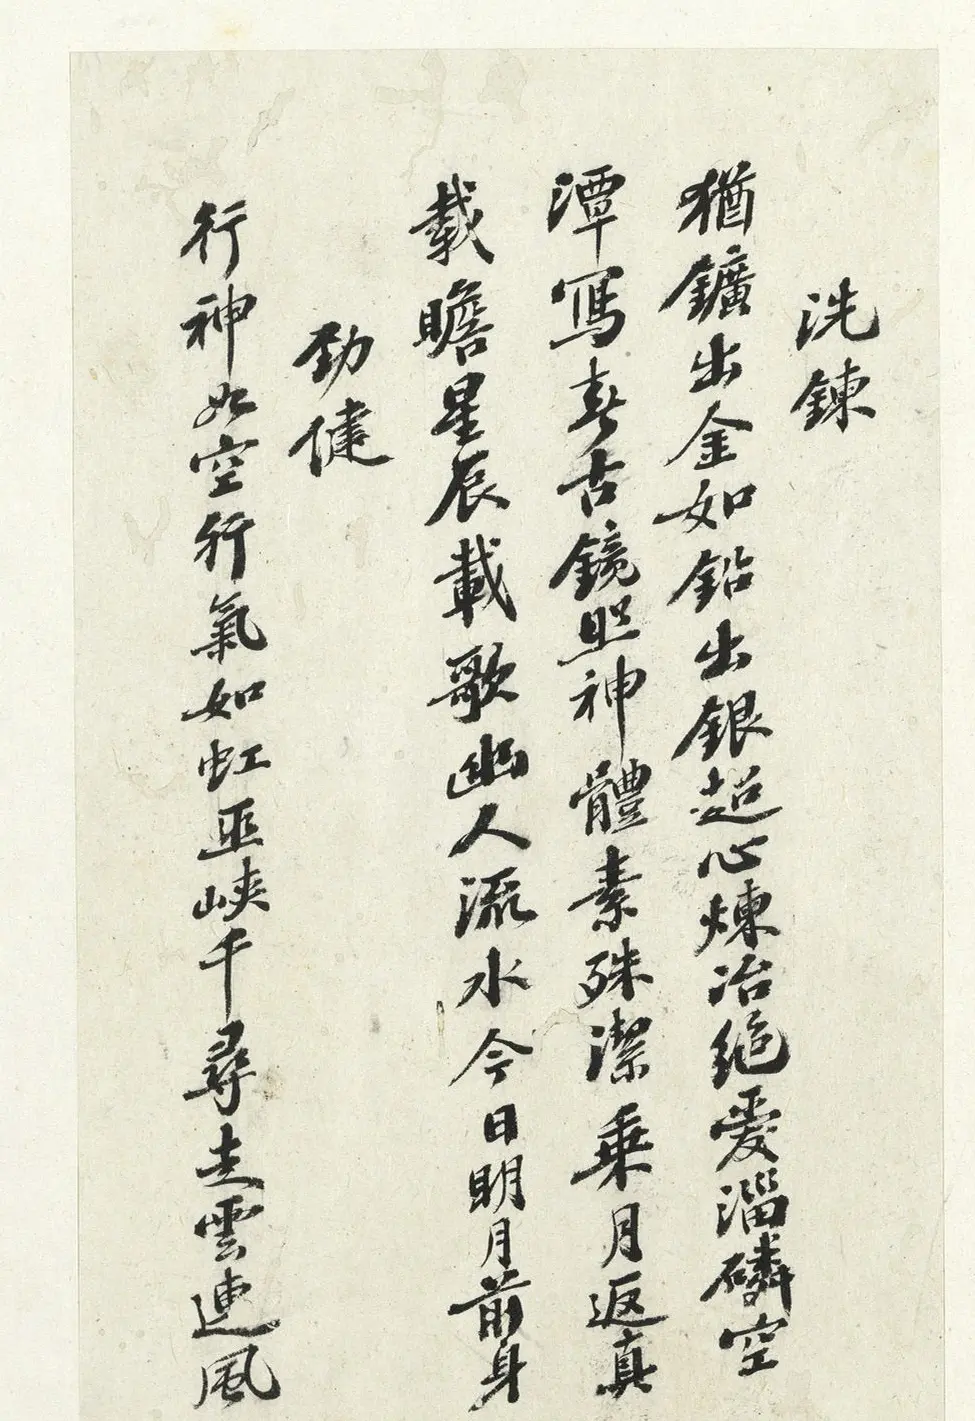 洗鍊
猶鑛出金如鉛出銀超心煉冶絕愛淄磷空
潭寫春古鏡照神體素殊潔乗月返真
載瞻星辰載歌幽人流水今日明月前身
勁健
行神如空行氣如虹巫峽千尋走雲連風